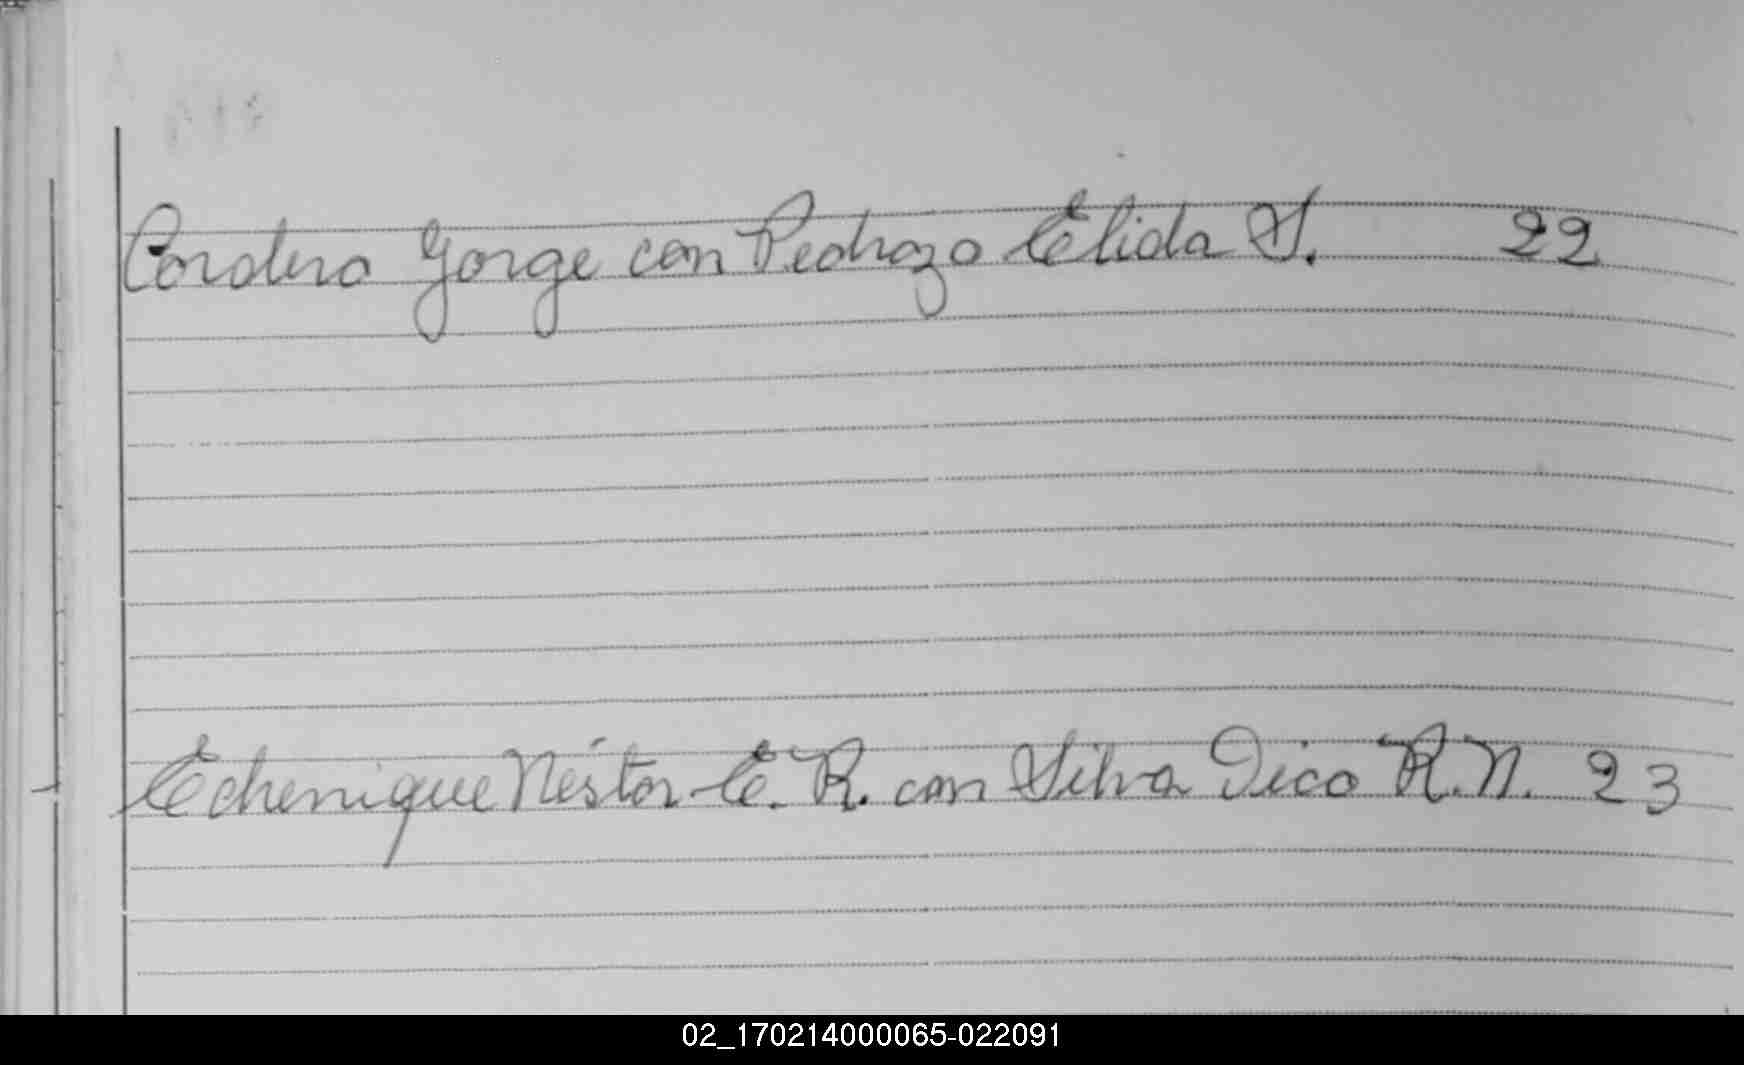 Cordero Jorge con Pedrozo Elida S. 22
Echenique Néstor E. R. con Silva Dico R. N. 23
02_170214000065-022091